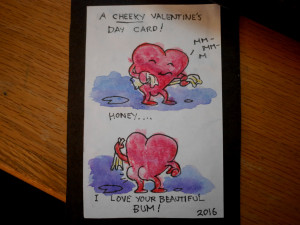 A CHEEKY VALENTINE'S
DAY CARD!
MM-
MM-
M
HONEY....
I LOVE YOUR BEAUTIFUL
BUM!
2016